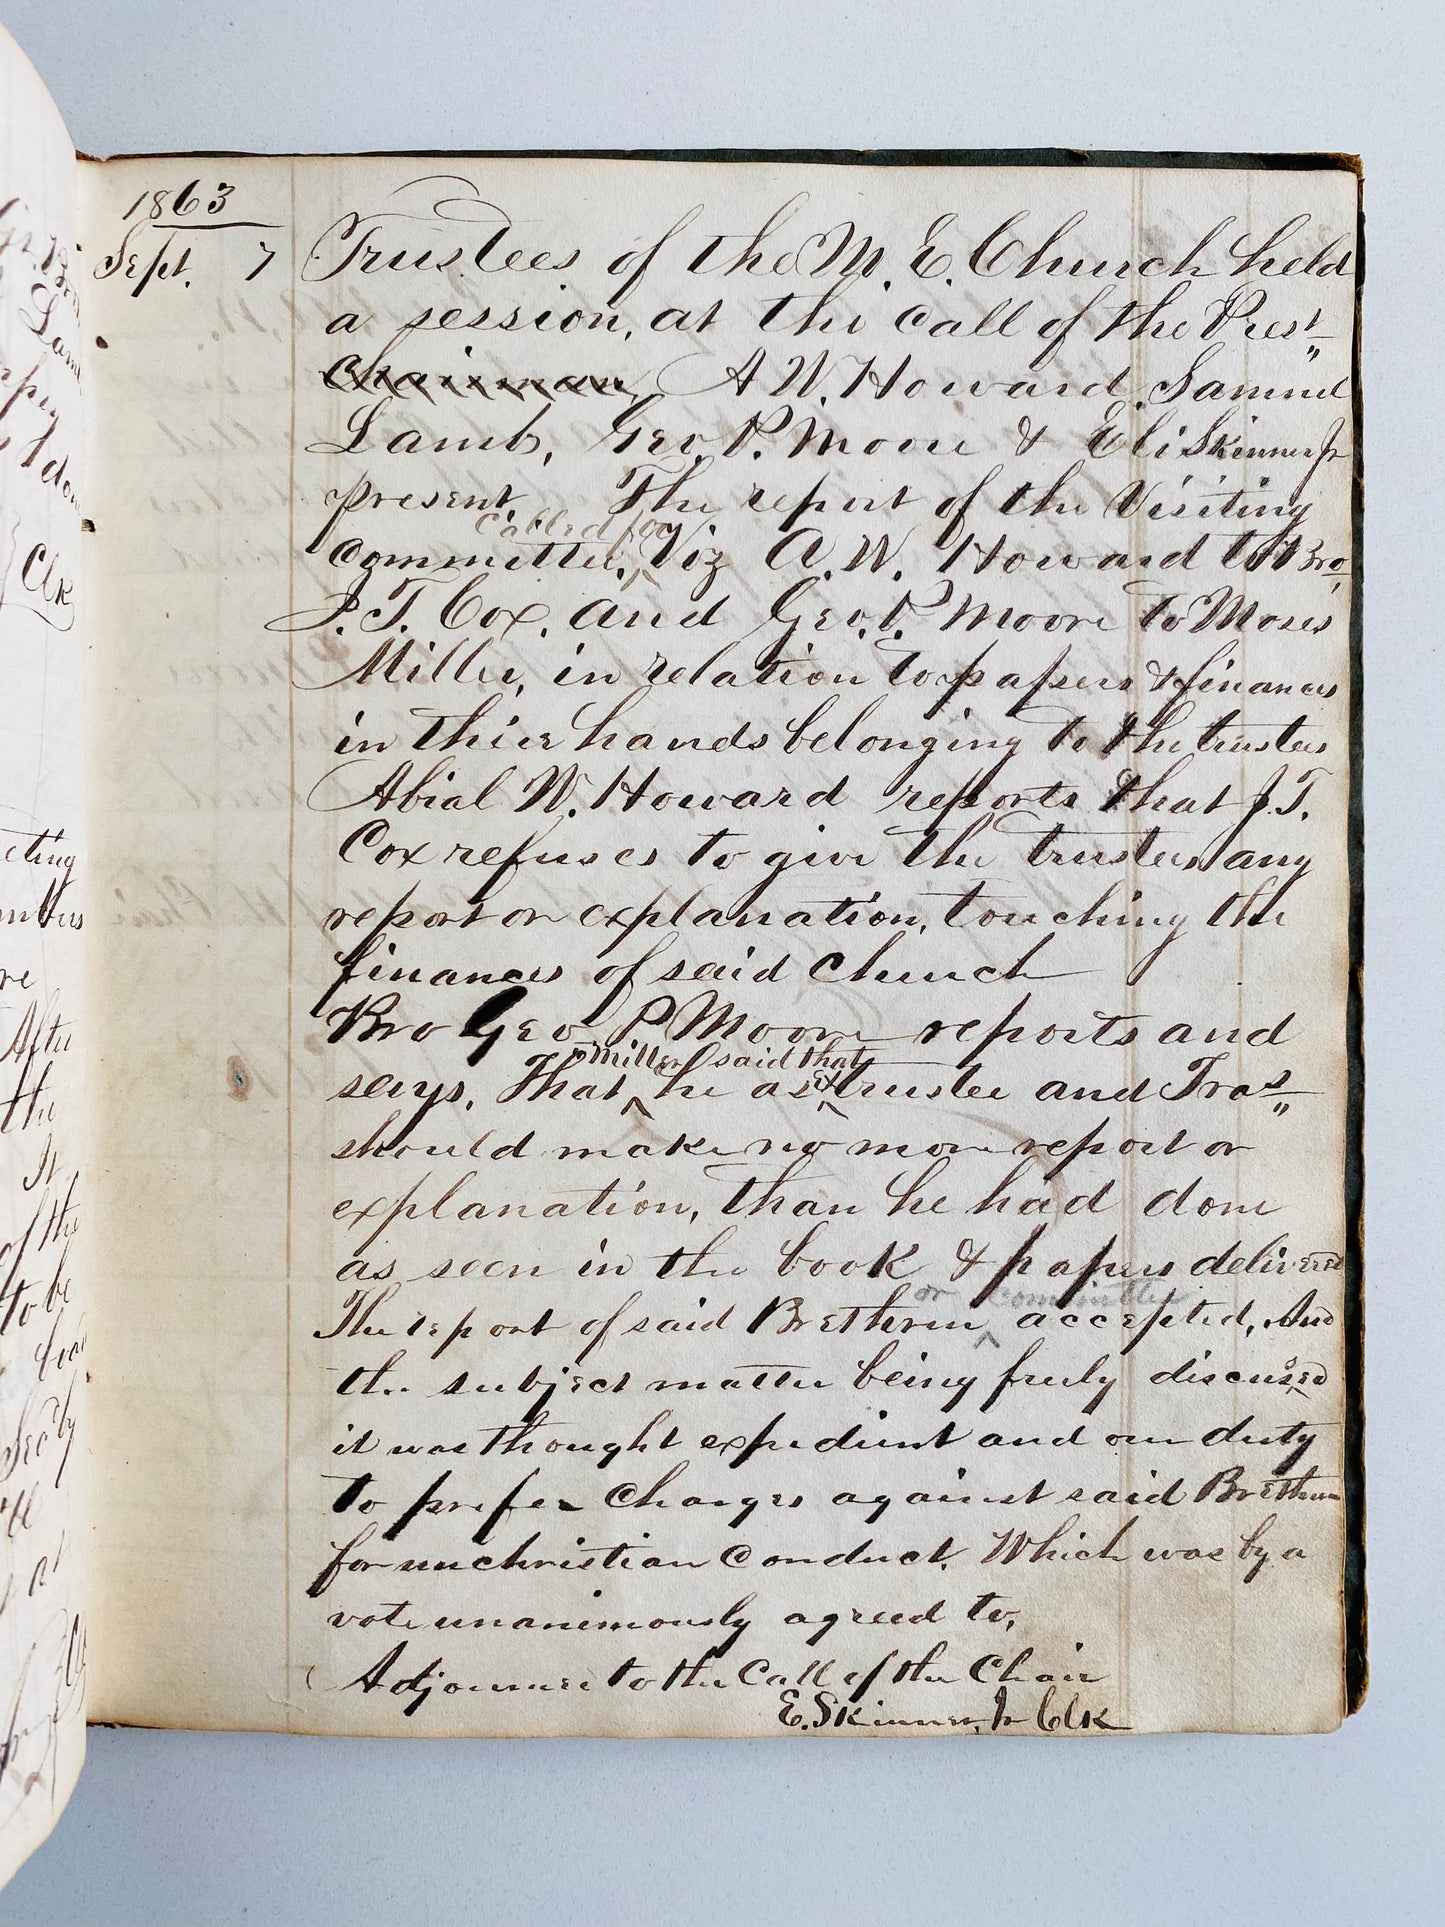 1863
Sept. 7 Trustees of the M. E. Church held
a session, at the call of the Prest
Chairman, A W. Howard, Samuel
Lamb, Geo. P. Moore & Eli Skinner Jr
present. The report of the Visiting
called for
committee, Viz A. W. Howard to Bro
J. T. Cox, and Geo. P. Moore to Moses
Miller, in relation to papers & finances
in thier hands belonging to the trustees
Abial W. Howard reports that J. T.
Cox refuses to give the trustees any
report or explanation, touching the
finances of said Church
Bro Geo P Moore reports and
Miller said that
says, that he as ex trustee and Tras
should make no more report or
explanation, than he had done
as seen in the book & papers delivered
or committee
The report of said Brethren accepted, And
the subject matter being fruly discussed
it was thought expedient and our duty
to prefer charges against said Brethren
for unchristian conduct. Which was by a
vote unanimously agreed to,
Adjourned to the Call of the Chair
E. Skinner, Jr Clk
Clk
eting
mbers
re
After
the
It
of the
to be
by